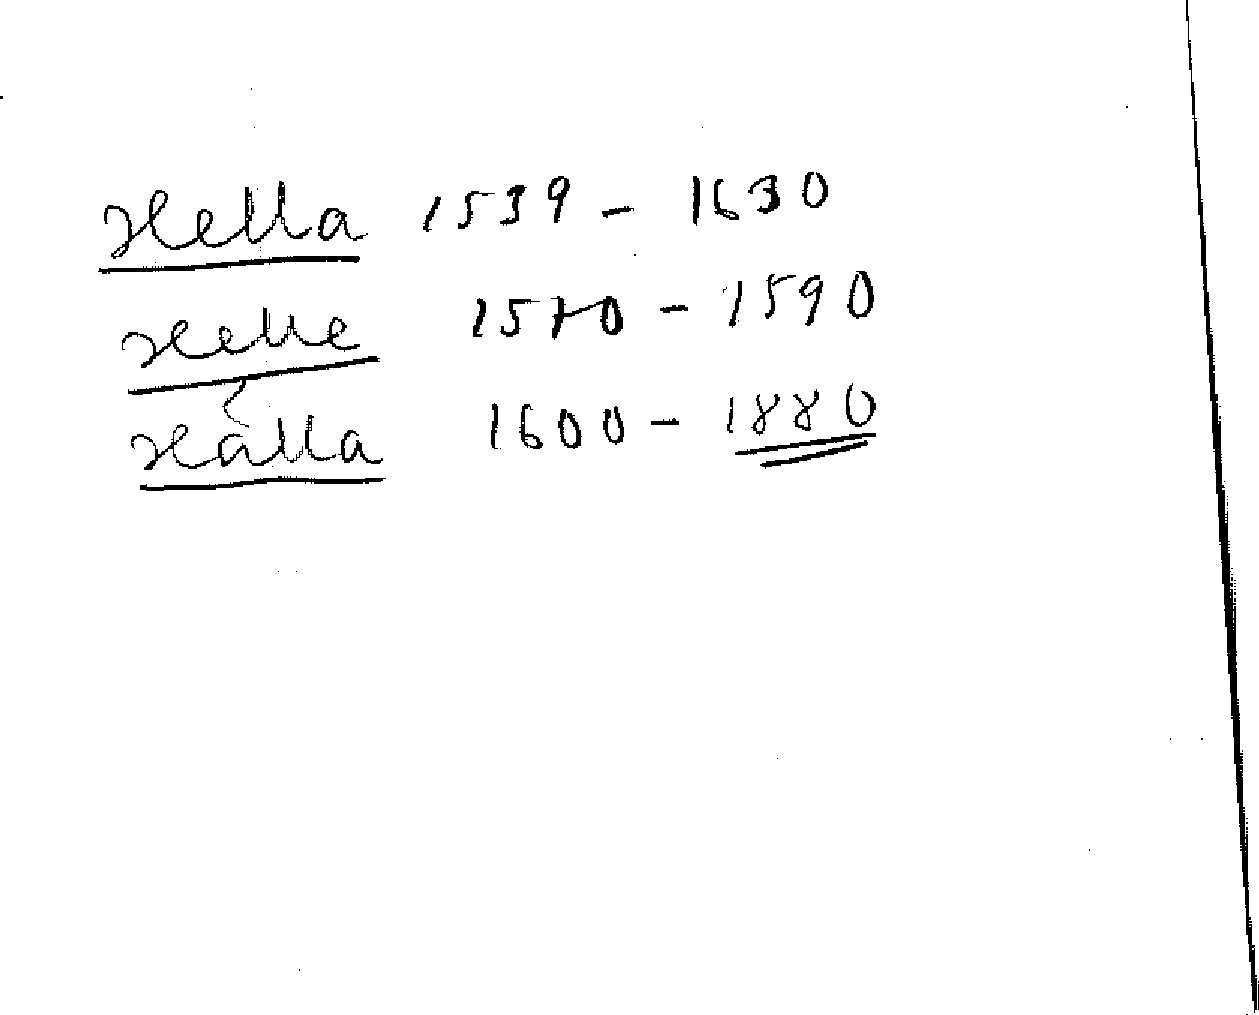 Hella 1539 - 1630
Helle 1570 - 1590
Hälla 1600 - 1880